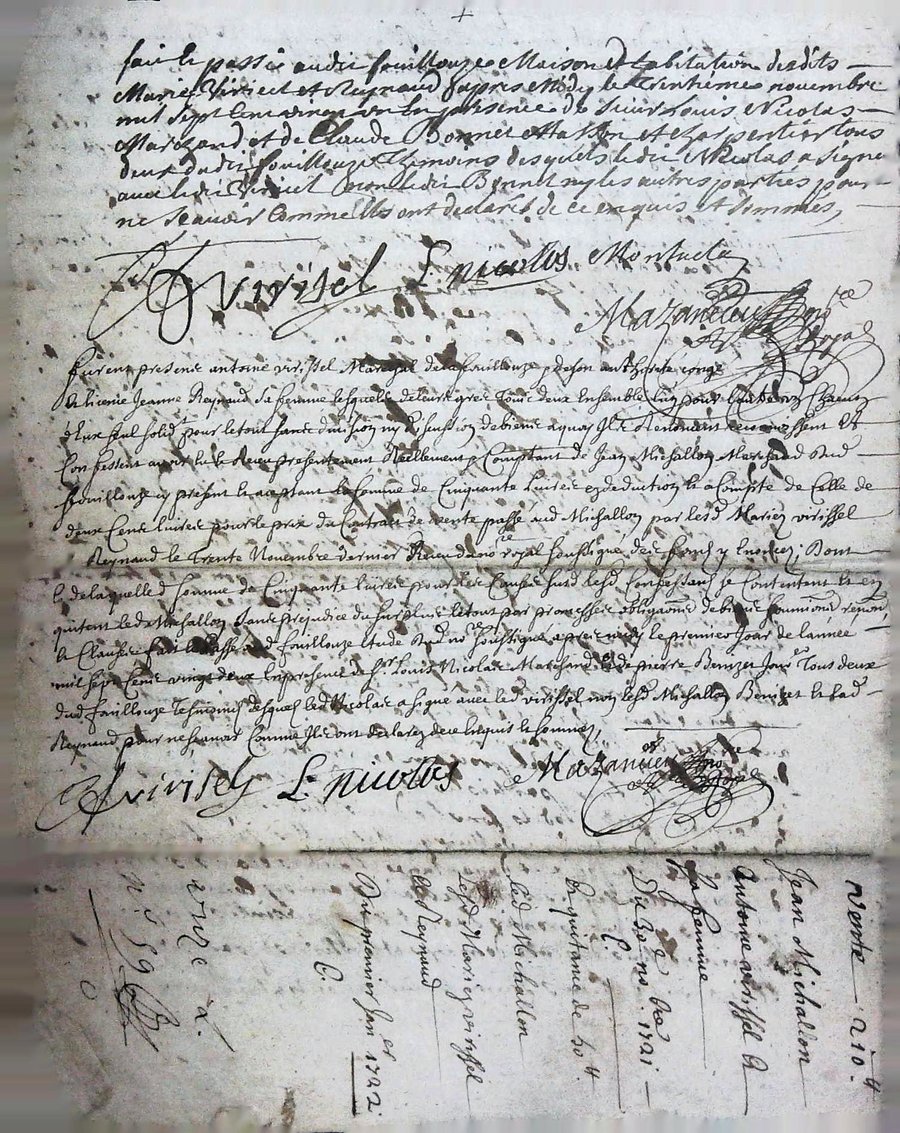 fait et passé audit fouillouze Maison et habitation desdits
Mariés Virisel et Reynaud apres Midy le Trentieme novembre
mil sept Cent vingt un En presence de sieur Louis Nicolas
Marchand et de Claude Bonnet et Charpentier tous
deux dudit fouillouze Themoins desquels ledit Nicolas a signé
avec ledit Virisel non ledit Bonnet ny les autres parties pour
ne Scavoir Comme Ils ont declaré de ce enquis et sommés
A virisel L nicolas Montuela
Mazancieu no.re Royal
furent presens antoine virissel Mareschal de la fouillouze et de son authorité
Jeanne Reynaud sa femme lesquels de leurs grés Tous deux Ensemble
d'Eux seul solid.t pour le tout sans division ny
Confessent avoir heu et Receu presentement Reellement Comptant de Jean Michallon Marchand dud
fouillouze cy present et acceptant la somme de Cinquante livres en deduction et a Compte de Celle de
deux Cens livres pour le prix du Contract de vente passé aud Michallon par lesd Mariez virissel
Reynaud le Trente Novembre dernier Receu du no.re royal soussigné
de laquelled somme de Cinquante livres pour les Causes susd lesd Confessans se Contentent et en
quitent led Michallon Sans prejudice du surplus le tout par promesses obligaons de biens soumissions renon
et Clauses fait et passé aud fouillouze Etude dud no.re soussigné apres midy le premier Jour de l'année
mil sept Cens vingt deux En presence de S.r Louis Nicolas Marchand et de pierre Tous deux
dud fouillouze Tesmoins desquels led Nicolas a signé avec led virissel non lesd Michallon et lad
Reynaud pour ne scavoir Comme Ils ont declarez de ce Enquis et sommez
A virisel L nicolas Mazancieu no.re Royal
vente 210.tt
Jean Michallon
Antoine virissel et
sa femme
Du 30.e no.bre 1721
C.
et quitance de 50.tt
led Michallon
lesd Mariez virissel
et Reynaud
Du premier Jan.er 1722
C.
n.o 59